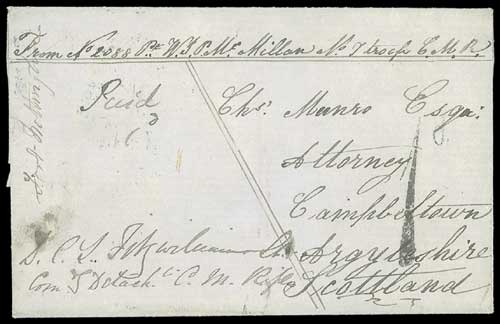 From No 2088 Pte W. J. P. Mc Millan No 7 troop C. M. R.
Paid
6d
Chs. Munro Esqr
Attorney
Campbeltown
Argyleshire
Scottland
Fitzwilliam
Com. Detach. C. M. Rifles